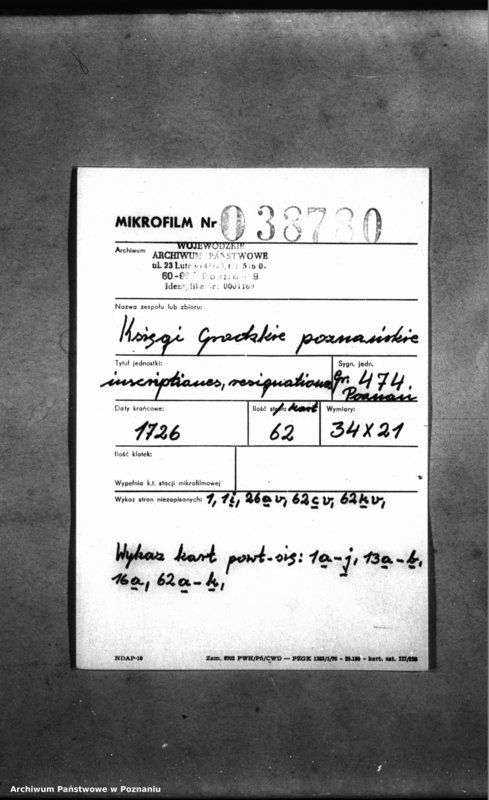 MIKROFILM Nr 038780
Archiwum WOJEWÓDZKIE
ARCHIWUM PAŃSTWOWE
ul. 23 Lutego
60-967 Poznań 9
Nazwa zespołu lub zbioru:
Księgi Grodzkie poznańskie
Tytuł jednostki: Sygn. jedn.
inscriptiones, resignationes Gr. 474.
Poznań
Daty krańcowe: Ilość stron/kart Wymiary:
1726 62 34X21
Ilość klatek:
Wypełnia k.t. stacji mikrofilmowej
Wykaz stron niezapisanych: 1, 1i, 26av, 62cv, 62kv,
Wykaz kart powt-się: 1a-j, 13a-b,
16a, 62a-k,
NDAP-10 Zam.
Archiwum Państwowe w Poznaniu